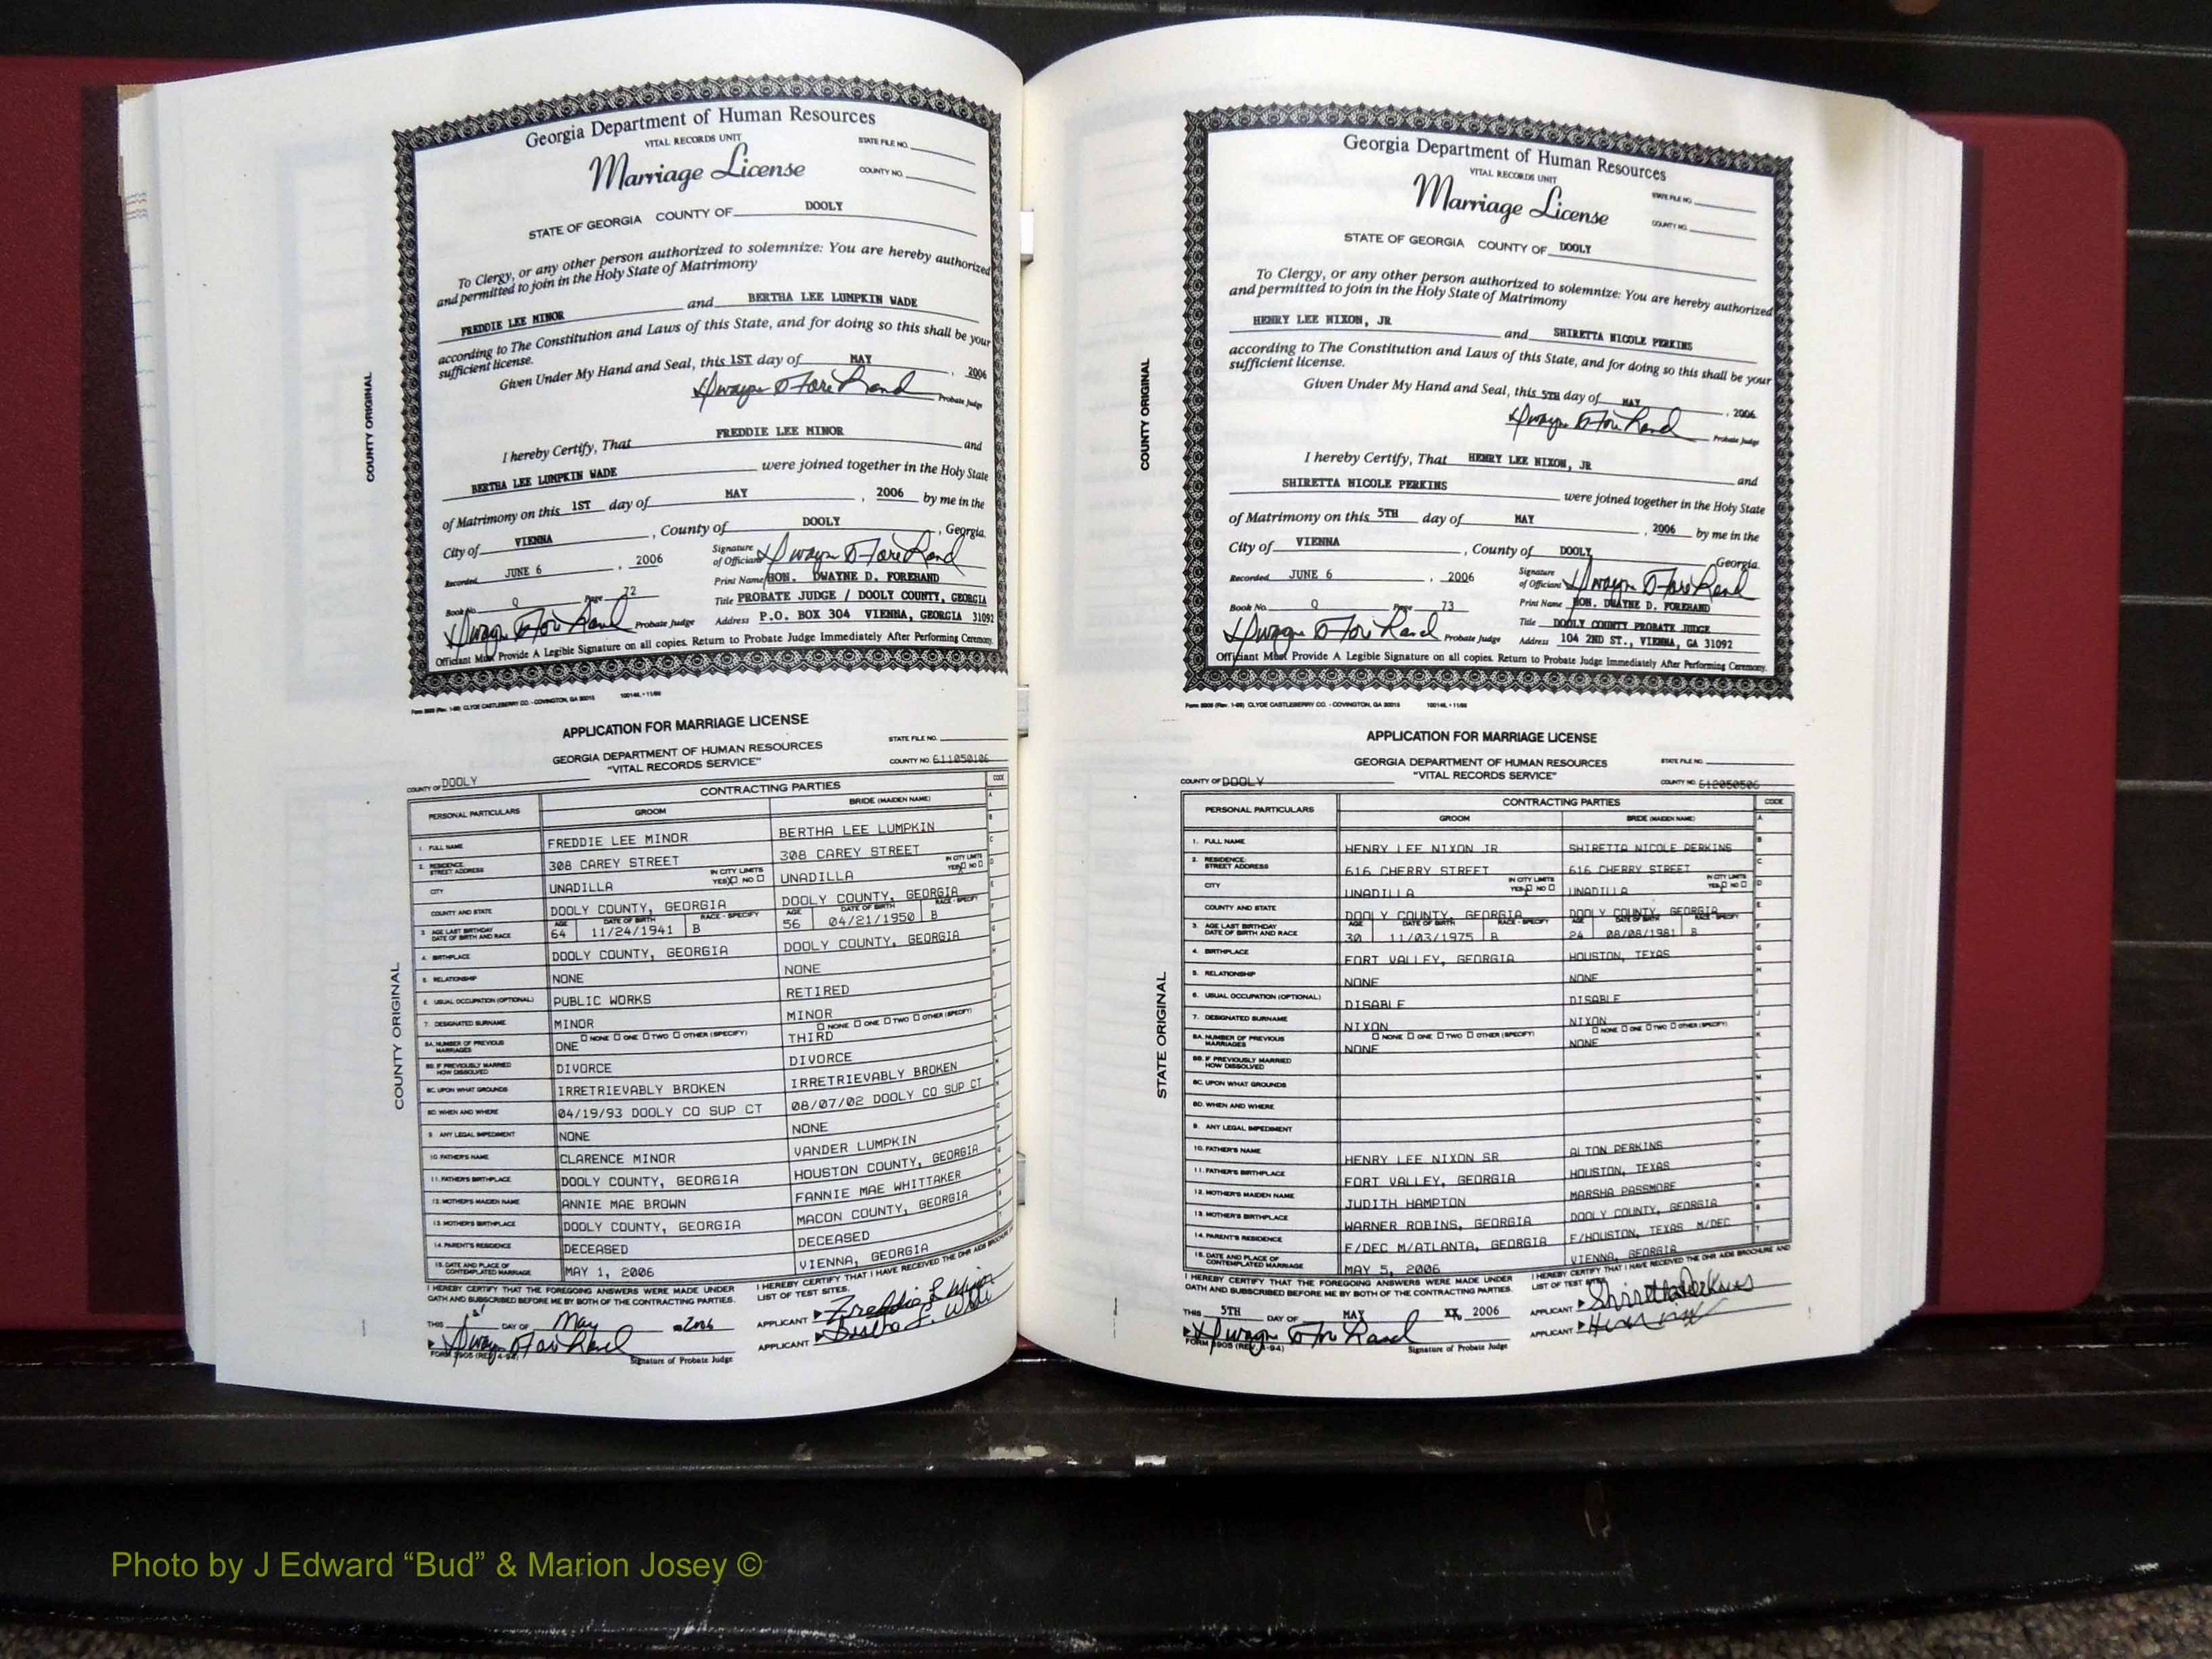 Georgia Department of Human Resources
VITAL RECORDS UNIT
STATE FILE NO.
Marriage License
COUNTY NO.
STATE OF GEORGIA COUNTY OF DOOLY
To Clergy, or any other person authorized to solemnize: You are hereby authorized
and permitted to join in the Holy State of Matrimony
FREDDIE LEE MINOR and BERTHA LEE LUMPKIN WADE
according to The Constitution and Laws of this State, and for doing so this shall be your
sufficient license.
Given Under My Hand and Seal, this 1ST day of MAY, 2006
Probate Judge
I hereby Certify, That FREDDIE LEE MINOR and
BERTHA LEE LUMPKIN WADE were joined together in the Holy State
of Matrimony on this 1ST day of MAY, 2006 by me in the
City of VIENNA, County of DOOLY, Georgia.
Recorded JUNE 6, 2006
Signature of Officiant
Print Name HON. DWAYNE D. FOREHAND
Book No. Q Page 72
Title PROBATE JUDGE / DOOLY COUNTY, GEORGIA
Probate Judge
Address P.O. BOX 304 VIENNA, GEORGIA 31092
Officiant Must Provide A Legible Signature on all copies. Return to Probate Judge Immediately After Performing Ceremony.
COUNTY ORIGINAL
APPLICATION FOR MARRIAGE LICENSE
GEORGIA DEPARTMENT OF HUMAN RESOURCES
"VITAL RECORDS SERVICE"
STATE FILE NO.
COUNTY NO. 611050106
COUNTY OF DOOLY
PERSONAL PARTICULARS CONTRACTING PARTIES CODE
GROOM BRIDE (MAIDEN NAME)
1. FULL NAME FREDDIE LEE MINOR BERTHA LEE LUMPKIN
2. RESIDENCE: STREET ADDRESS 308 CAREY STREET 308 CAREY STREET
CITY UNADILLA IN CITY LIMITS YES NO UNADILLA IN CITY LIMITS YES NO
COUNTY AND STATE DOOLY COUNTY, GEORGIA DOOLY COUNTY, GEORGIA
3. AGE LAST BIRTHDAY DATE OF BIRTH AND RACE AGE 64 DATE OF BIRTH 11/24/1941 RACE - SPECIFY B AGE 56 DATE OF BIRTH 04/21/1950 RACE - SPECIFY B
4. BIRTHPLACE DOOLY COUNTY, GEORGIA DOOLY COUNTY, GEORGIA
5. RELATIONSHIP NONE NONE
6. USUAL OCCUPATION (OPTIONAL) PUBLIC WORKS RETIRED
7. DESIGNATED SURNAME MINOR MINOR
8A. NUMBER OF PREVIOUS MARRIAGES NONE ONE TWO OTHER (SPECIFY) ONE NONE ONE TWO OTHER (SPECIFY) THIRD
8B. IF PREVIOUSLY MARRIED HOW DISSOLVED DIVORCE DIVORCE
8C. UPON WHAT GROUNDS IRRETRIEVABLY BROKEN IRRETRIEVABLY BROKEN
8D. WHEN AND WHERE 04/19/93 DOOLY CO SUP CT 08/07/02 DOOLY CO SUP CT
9. ANY LEGAL IMPEDIMENT NONE NONE
10. FATHER'S NAME CLARENCE MINOR VANDER LUMPKIN
11. FATHER'S BIRTHPLACE DOOLY COUNTY, GEORGIA HOUSTON COUNTY, GEORGIA
12. MOTHER'S MAIDEN NAME ANNIE MAE BROWN FANNIE MAE WHITTAKER
13. MOTHER'S BIRTHPLACE DOOLY COUNTY, GEORGIA MACON COUNTY, GEORGIA
14. PARENT'S RESIDENCE DECEASED DECEASED
15. DATE AND PLACE OF CONTEMPLATED MARRIAGE MAY 1, 2006 VIENNA, GEORGIA
I HEREBY CERTIFY THAT THE FOREGOING ANSWERS WERE MADE UNDER
OATH AND SUBSCRIBED BEFORE ME BY BOTH OF THE CONTRACTING PARTIES.
I HEREBY CERTIFY THAT I HAVE RECEIVED THE DHR AIDS BROCHURE
LIST OF TEST SITES.
THIS 1st DAY OF May 2006
APPLICANT Freddie L Minor
APPLICANT
Signature of Probate Judge
COUNTY ORIGINAL
Georgia Department of Human Resources
VITAL RECORDS UNIT
STATE FILE NO.
Marriage License
COUNTY NO.
STATE OF GEORGIA COUNTY OF DOOLY
To Clergy, or any other person authorized to solemnize: You are hereby authorized
and permitted to join in the Holy State of Matrimony
HENRY LEE NIXON, JR and SHIRETTA NICOLE PERKINS
according to The Constitution and Laws of this State, and for doing so this shall be your
sufficient license.
Given Under My Hand and Seal, this 5TH day of MAY, 2006
Probate Judge
I hereby Certify, That HENRY LEE NIXON, JR and
SHIRETTA NICOLE PERKINS were joined together in the Holy State
of Matrimony on this 5TH day of MAY, 2006 by me in the
City of VIENNA, County of DOOLY Georgia.
Recorded JUNE 6, 2006
Signature of Officiant
Print Name HON. DWAYNE D. FOREHAND
Book No. Q Page 73
Title DOOLY COUNTY PROBATE JUDGE
Probate Judge
Address 104 2ND ST., VIENNA, GA 31092
Officiant Must Provide A Legible Signature on all copies. Return to Probate Judge Immediately After Performing Ceremony.
COUNTY ORIGINAL
APPLICATION FOR MARRIAGE LICENSE
GEORGIA DEPARTMENT OF HUMAN RESOURCES
"VITAL RECORDS SERVICE"
STATE FILE NO.
COUNTY NO. 612050506
COUNTY OF DOOLY
PERSONAL PARTICULARS CONTRACTING PARTIES CODE
GROOM BRIDE (MAIDEN NAME)
1. FULL NAME HENRY LEE NIXON JR SHIRETTA NICOLE PERKINS
2. RESIDENCE: STREET ADDRESS 616 CHERRY STREET 616 CHERRY STREET
CITY UNADILLA IN CITY LIMITS YES NO UNADILLA IN CITY LIMITS YES NO
COUNTY AND STATE DOOLY COUNTY, GEORGIA DOOLY COUNTY, GEORGIA
3. AGE LAST BIRTHDAY DATE OF BIRTH AND RACE AGE 30 DATE OF BIRTH 11/03/1975 RACE - SPECIFY B AGE 24 DATE OF BIRTH 08/08/1981 RACE - SPECIFY B
4. BIRTHPLACE FORT VALLEY, GEORGIA HOUSTON, TEXAS
5. RELATIONSHIP NONE NONE
6. USUAL OCCUPATION (OPTIONAL) DISABLE DISABLE
7. DESIGNATED SURNAME NIXON NIXON
8A. NUMBER OF PREVIOUS MARRIAGES NONE ONE TWO OTHER (SPECIFY) NONE NONE ONE TWO OTHER (SPECIFY) NONE
8B. IF PREVIOUSLY MARRIED HOW DISSOLVED
8C. UPON WHAT GROUNDS
8D. WHEN AND WHERE
9. ANY LEGAL IMPEDIMENT
10. FATHER'S NAME HENRY LEE NIXON SR ALTON PERKINS
11. FATHER'S BIRTHPLACE FORT VALLEY, GEORGIA HOUSTON, TEXAS
12. MOTHER'S MAIDEN NAME JUDITH HAMPTON MARSHA PASSMORE
13. MOTHER'S BIRTHPLACE WARNER ROBINS, GEORGIA DOOLY COUNTY, GEORGIA
14. PARENT'S RESIDENCE F/DEC M/ATLANTA, GEORGIA F/HOUSTON, TEXAS M/DEC
15. DATE AND PLACE OF CONTEMPLATED MARRIAGE MAY 5, 2006 VIENNA, GEORGIA
I HEREBY CERTIFY THAT THE FOREGOING ANSWERS WERE MADE UNDER
OATH AND SUBSCRIBED BEFORE ME BY BOTH OF THE CONTRACTING PARTIES.
I HEREBY CERTIFY THAT I HAVE RECEIVED THE DHR AIDS BROCHURE AND
LIST OF TEST SITES.
THIS 5TH DAY OF MAY XX 2006
APPLICANT Shiretta Perkins
APPLICANT
Signature of Probate Judge
STATE ORIGINAL
Photo by J Edward “Bud” & Marion Josey ©